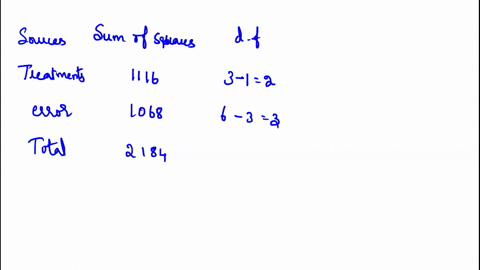 Sources Sum of squares d.f
Treatments 1116 3-1=2
error 1068 6-3=3
Total 2184